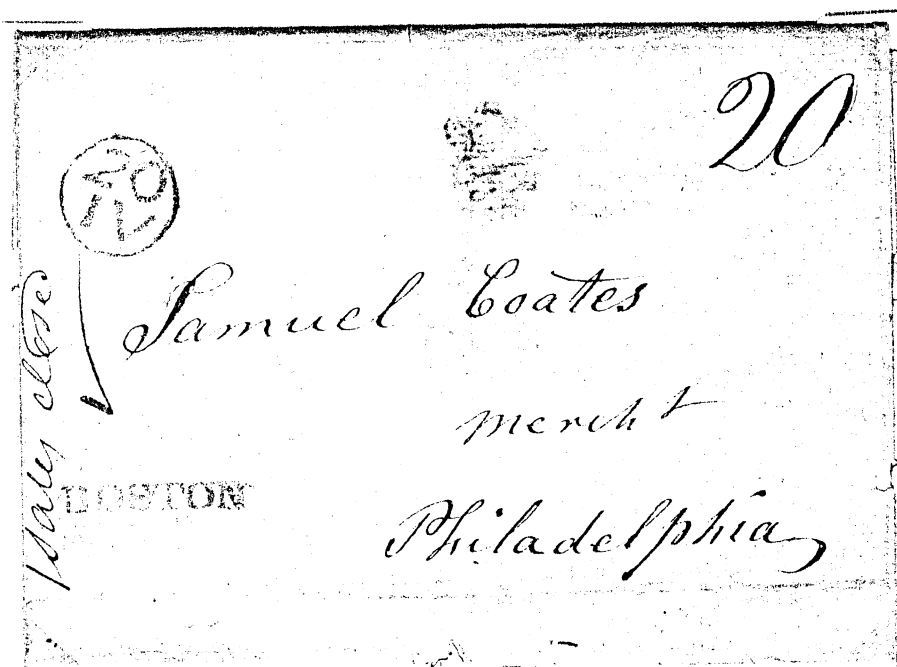 20
20
Samuel Coates
Mercht
Philadelphia
BOSTON